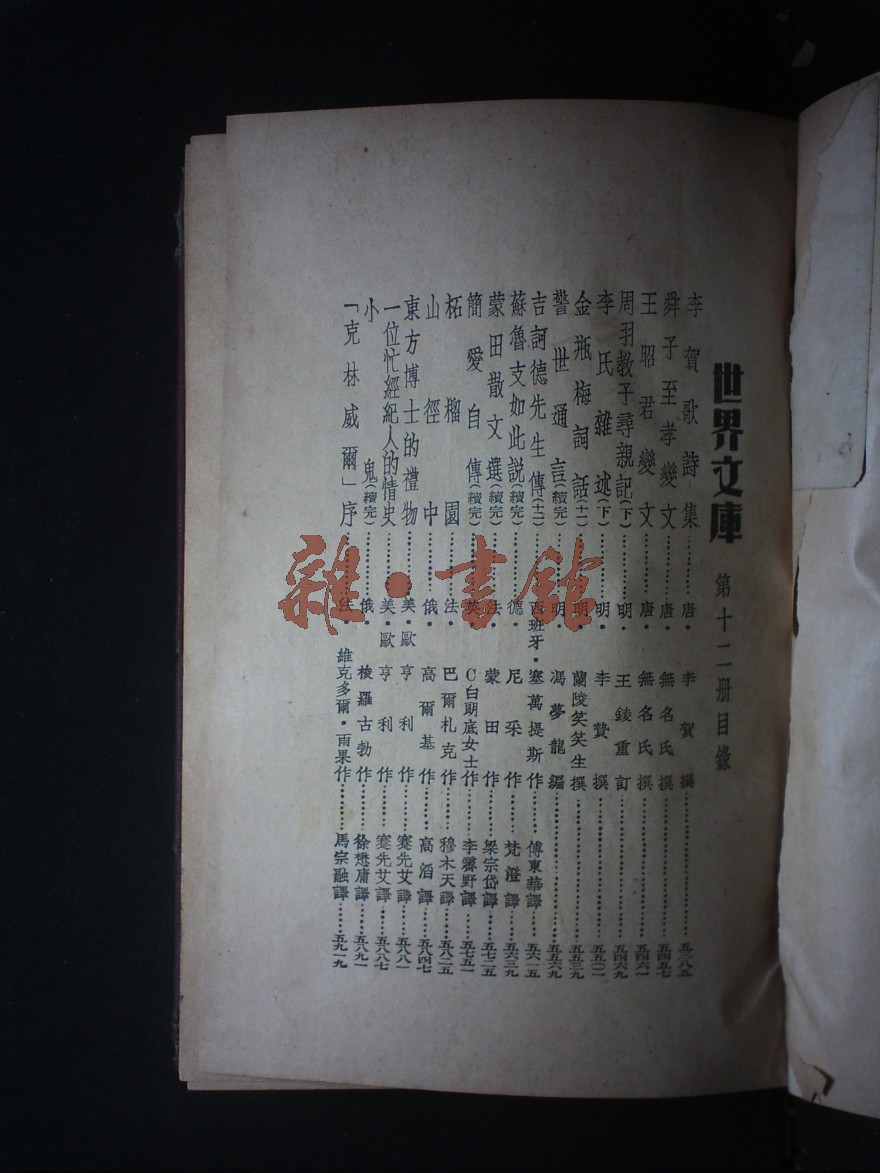 世界文庫 第十二冊目錄
李賀歌詩集…………唐・李賀撰…………五三八五
舜子至孝變文………唐・無名氏撰…………五四五七
王昭君變文…………唐・無名氏撰…………五四六一
周羽教子尋親記(下)…………明・王錂重訂…………五四六九
李氏雜述(下)…………明・李贄撰…………五五〇一
金瓶梅詞話(十一)…………明・蘭陵笑笑生撰…………五五三九
警世通言(續完)…………明・馮夢龍編…………五五六九
吉訶德先生傳(十二)…………西班牙・塞萬提斯作……傅東華譯……五六一五
蘇魯支如此說(續完)…………德・尼采作……梵澄譯……五六三九
蒙田散文選(續完)…………法・蒙田作……梁宗岱譯……五七二五
簡愛自傳(續完)…………英・C白朗底女士作……李霽野譯……五七五一
柘榴園…………法・巴爾札克作……穆木天譯……五八二五
山徑中…………俄・高爾基作……高滔譯……五八四七
東方博士的禮物…………美・歐亨利作……蹇先艾譯……五八八一
一位忙經紀人的情史…………美・歐亨利作……蹇先艾譯……五八八七
小鬼(續完)…………俄・梭羅古勃作……徐懋庸譯……五八九一
「克林威爾」序…………法・維克多爾・雨果作……馬宗融譯……五九一九
雜・書館